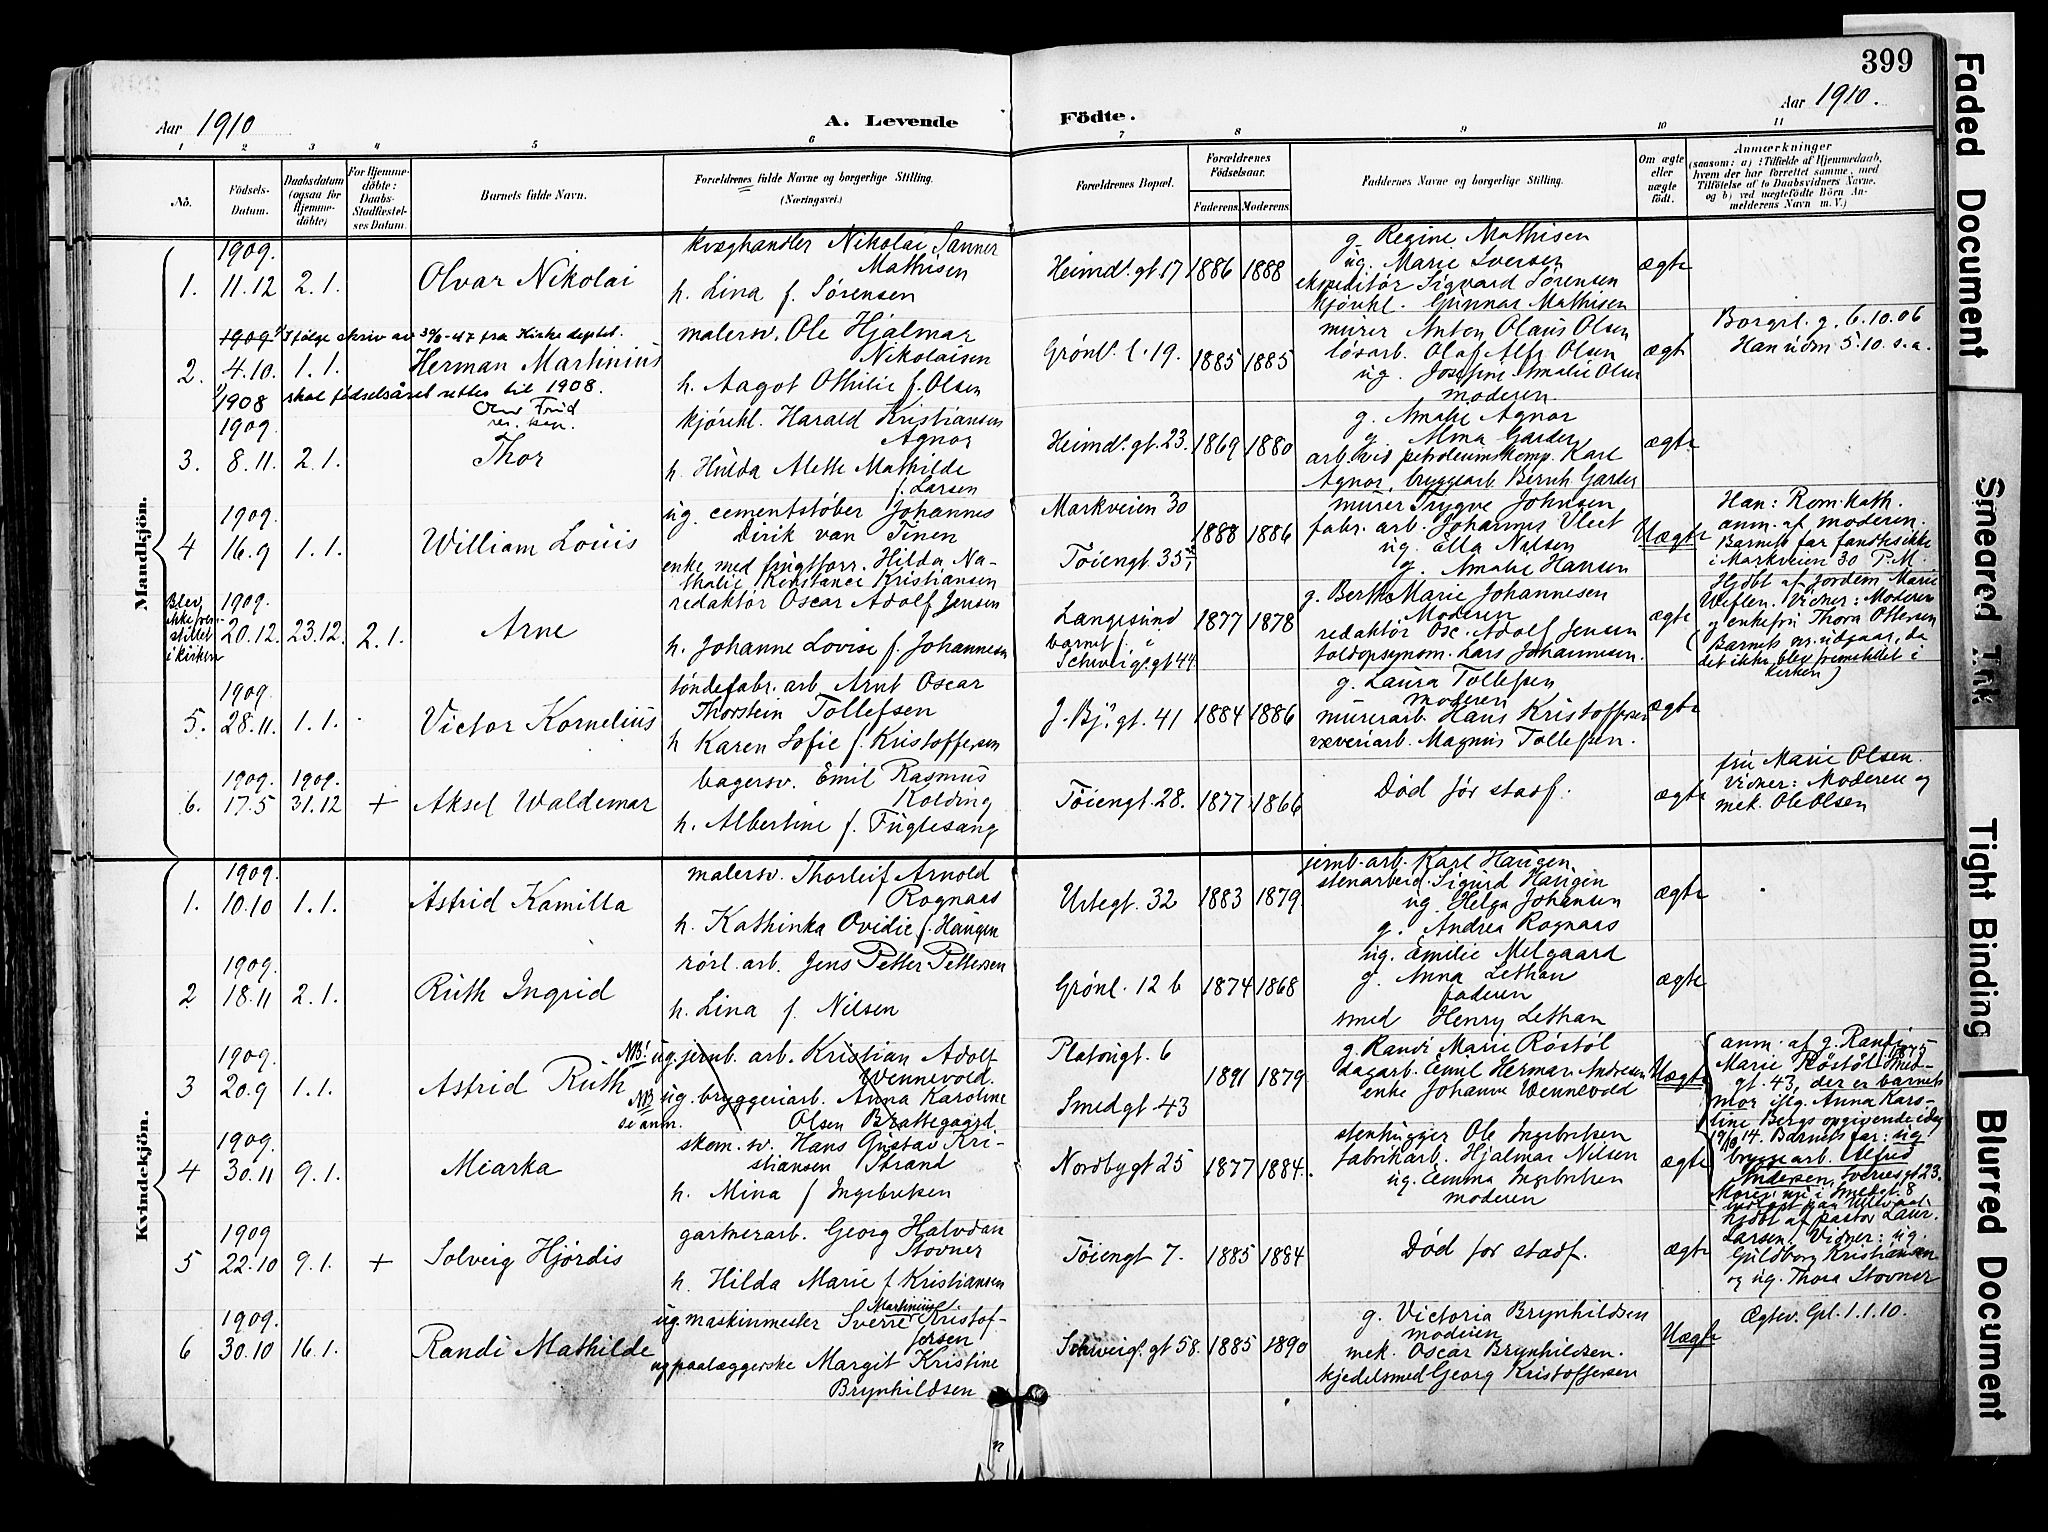 399
Aar 1910
A. Levende Födte.
Aar 1910.
1 2 3 4 5 6 7 8 9 10 11
No.
Födsels-Datum.
Daabsdatum (ogsaa for Hjemmedöbte)
For Hjemmedöbte: Daabs-Stadfæstelses Datum.
Barnets fulde Navn.
Forældrenes fulde Navne og borgerlige Stilling. (Næringsvei.)
Forældrenes Bopæl.
Forældrenes Födselsaar.
Faderens. Moderens.
Faddernes Navne og borgerlige Stilling.
Om ægte eller uægte födt.
Anmærkninger
(saasom: a) : Tilfælde af Hjemmedaab,
hvem der har forrettet samme, med
Tilföielse af to Daabsvidners Navne.
og b) ved uægtefödte Börn Anmelderens Navn m. V.)
Mandkjön.
1. 1909. 11.12 2.1. Olvar Nikolai
kvæghandler Nikolai Sanner
Mathisen
h. Lina f. Sørensen
Heimd. gt 17 1886 1888
g. Regine Mathisen
ug. Marie Iversen
ekspeditör Sigvard Sörensen
kjörekl. Gunnar Mathisen
ægte
2. 1909 4.10. 1.1. Herman Martinius
Ifølge skriv av 30/ - 47 fra Kirkedeptet.
1908 skal fødselsåret rettes til 1908.
res. kap.
malersv. Ole Hjalmar
Nikolaisen
h. Aagot Othilie f. Olsen
Grønl. l. 19. 1885 1885
murer Anton Olaus Olsen
løsarb. Olaf Alfr Olsen
ug. Josefine Amalie Olsen
moderen.
ægte
Borgerl. g. 6.10.06
Han udm 5.10. s.a.
3. 1909. 8.11. 2.1. Thor
kjørekl. Harald Kristiansen
Agnor
h. Hulda Alette Mathilde
f. Larsen
Heimd. gt. 23. 1869 1880
g. Amalie Agnor
g. Alma Garder
arb. ved petroleumskomp. Karl
Agnor, bryggearb Bernh Garder
ægte
4 1909. 16.9 1.1. William Louis
ug. cementstøber Johannes
Dirik van Tinen
enke med frugtforr. Hilda Nathalie Konstance Kristiansen
Markveien 30
Tøiengt. 35 1888 1886
murer Trygve Johnsen
fabr. arb. Johannes Vleet
ug. Ella Nilsen
g. Amalie Hansen
Uægte
Han: Rom. kath.
anm. af moderen.
Barnets far fandtes ikke
i Markveien 30 P.M.
Blev ikke fremstillet i kirken
1909. 20.12. 23.12. 2.1. Arne
redaktör Oscar Adolf Jensen
h. Johanne Lovise f. Johannesen
Langesund
barnet f. i
Schweig. gt 44. 1877 1878
g. Berthe Marie Johannesen
Moderen
redaktör Osc. Adolf Jensen
toldopsynsm. Lars Johannesen.
ægte
Hjdbt af Jordem Marie
Weflen. Vidner: Moderen
og enkefru Thora Ottersen
(Barnets nr. udgaar, da
det ikke blev fremstillet i
kirken)
5. 1909. 28.11. 1.1. Victor Kornelius
töndefabr. arb. Arnt Oscar
Thorstein Tollefsen
h Karen Sofie f. Kristoffersen
J. Bj. gt. 41 1884 1886
g. Laura Tollefsen
moderen
murerarb. Hans Kristoffersen
væveriarb. Magnus Tollefsen.
ægte
6. 1909. 17.5 1909. 31.12 + Aksel Waldemar
bagersv. Emil Rasmus
Kolding
h. Albertine f. Fuglesang
Tøiengt. 28. 1877 1866
Død før stadf.
ægte
fru Marie Olsen.
Vidner: Moderen og
mek. Ole Olsen
Kvindekjön.
1. 1909. 10.10 1.1. Astrid Kamilla
malersv. Thorleif Arnold
Rognaas
h. Kathinka Ovidie f. Haugen
Urtegt. 32 1883 1879
jernb. arb. Karl Haugen
stenarbeid. Sigurd Haugen
ug. Helga Johansen
g. Andrea Rognaas
ægte
2 1909. 18.11 2.1. Ruth Ingrid
rörl. arb. Jens Petter Pettersen
h. Lina f. Nilsen
Grønl. 12 b 1874 1868
ug. Emilie Melgaard
g. Anna Lethan
faderen
smed Henry Lethan
ægte
3 1909. 20.9 1.1. Astrid Ruth
NB! ug. jernb. arb. Kristian Adolf
Wennevold.
NB ug. bryggeriarb. Anna Karoline
se anm. Olsen Brattegaard
Platougt. 6
Smedgt. 43 1891 1879
g. Randi Marie Röstöl
dagarb. Emil Herman Andresen
enke Johanne Wennevold
Uægte
anm. af g. Randi
Marie Röstöl 1875 Smedgt. 43, der er barnets
mor iflg. Anna Karoline Bergs opgivende idag
9/10 14. Barnets far: ug
bryggearb. Alfred
Andersen, Sverresgt 23.
4 1909. 30.11 9.1. Miarka
skom. sv. Hans Gustav Kristiansen Strand
h. Mina f Ingebretsen
Nordbygt 25 1877 1884.
stenhugger Ole Ingebretsen
fabrikarb. Hjalmar Nilsen
ug. Emma Ingebretsen
moderen
ægte
5 1909 22.10 9.1. + Solveig Hjördis
gartnerarb. Georg Halvdan
Stovner
h. Hilda Marie f Kristiansen
Tøiengt 7. 1885 1884
Død før stadf.
ægte
hjdbt af pastor Laur.
Larsen. Vidner: ug.
Guldborg Kristiansen
og ug. Thora Stovner
6 1909. 30.10 16.1. Randi Mathilde
ug. maskinmester Sverre Martinius Kristoffersen
ug paalæggerske Margit Kristine
Brynhildsen
Schweig. gt 58. 1885 1890
g. Victoria Brynhildsen
moderen
mek. Oscar Brynhildsen.
kjedelsmed Georg Kristoffersen
Uægte
Ægtev. Gpl. 1.1.10.
Faded Document
Smeared Ink
Tight Binding
Blurred Document